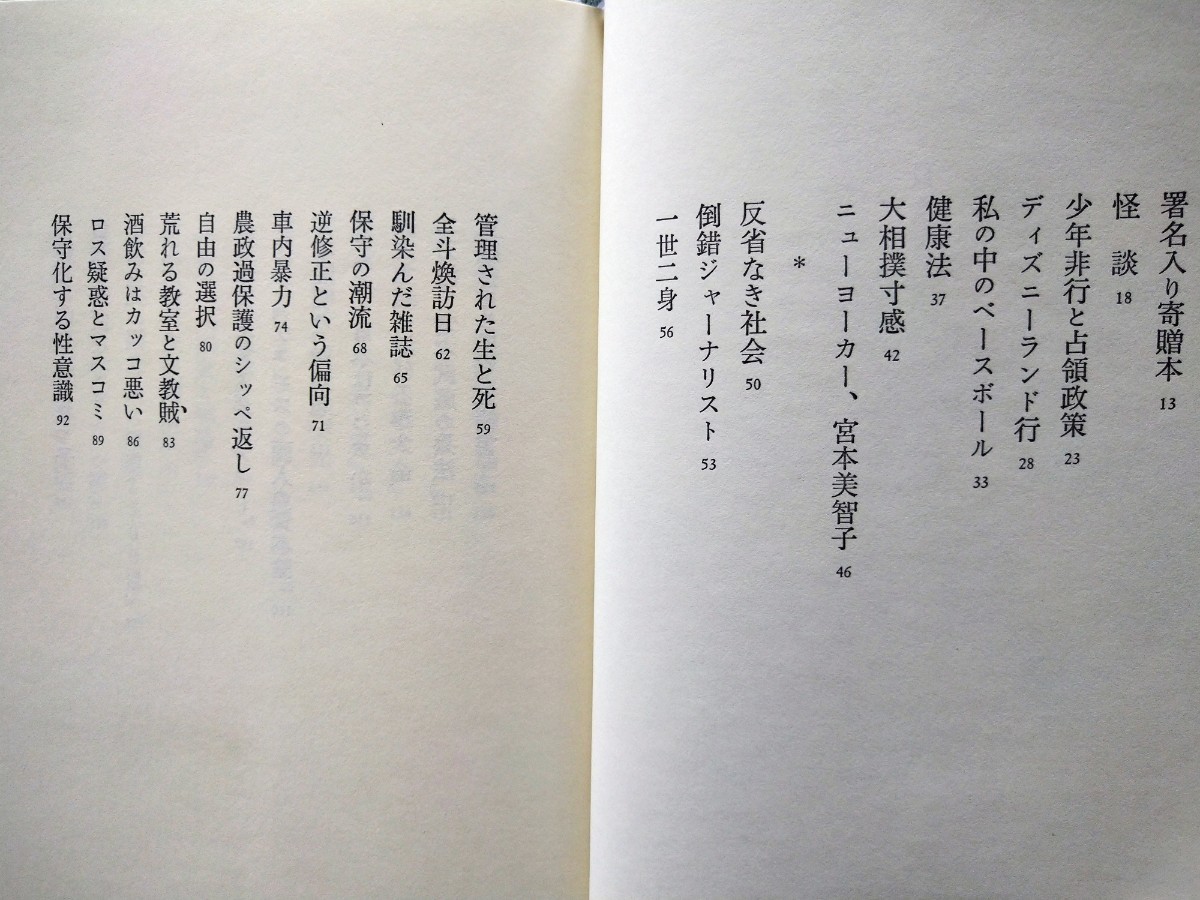 署名入り寄贈本 13
怪談 18
少年非行と占領政策 23
ディズニーランド行 28
私の中のベースボール 33
健康法 37
大相撲寸感 42
ニューヨーカー、宮本美智子 46
*
反省なき社会 50
倒錯ジャーナリスト 53
一世二身 56
管理された生と死 59
全斗煥訪日 62
馴染んだ雑誌 65
保守の潮流 68
逆修正という偏向 71
車内暴力 74
農政過保護のシッペ返し 77
自由の選択 80
荒れる教室と文教賊 83
酒飲みはカッコ悪い 86
ロス疑惑とマスコミ 89
保守化する性意識 92